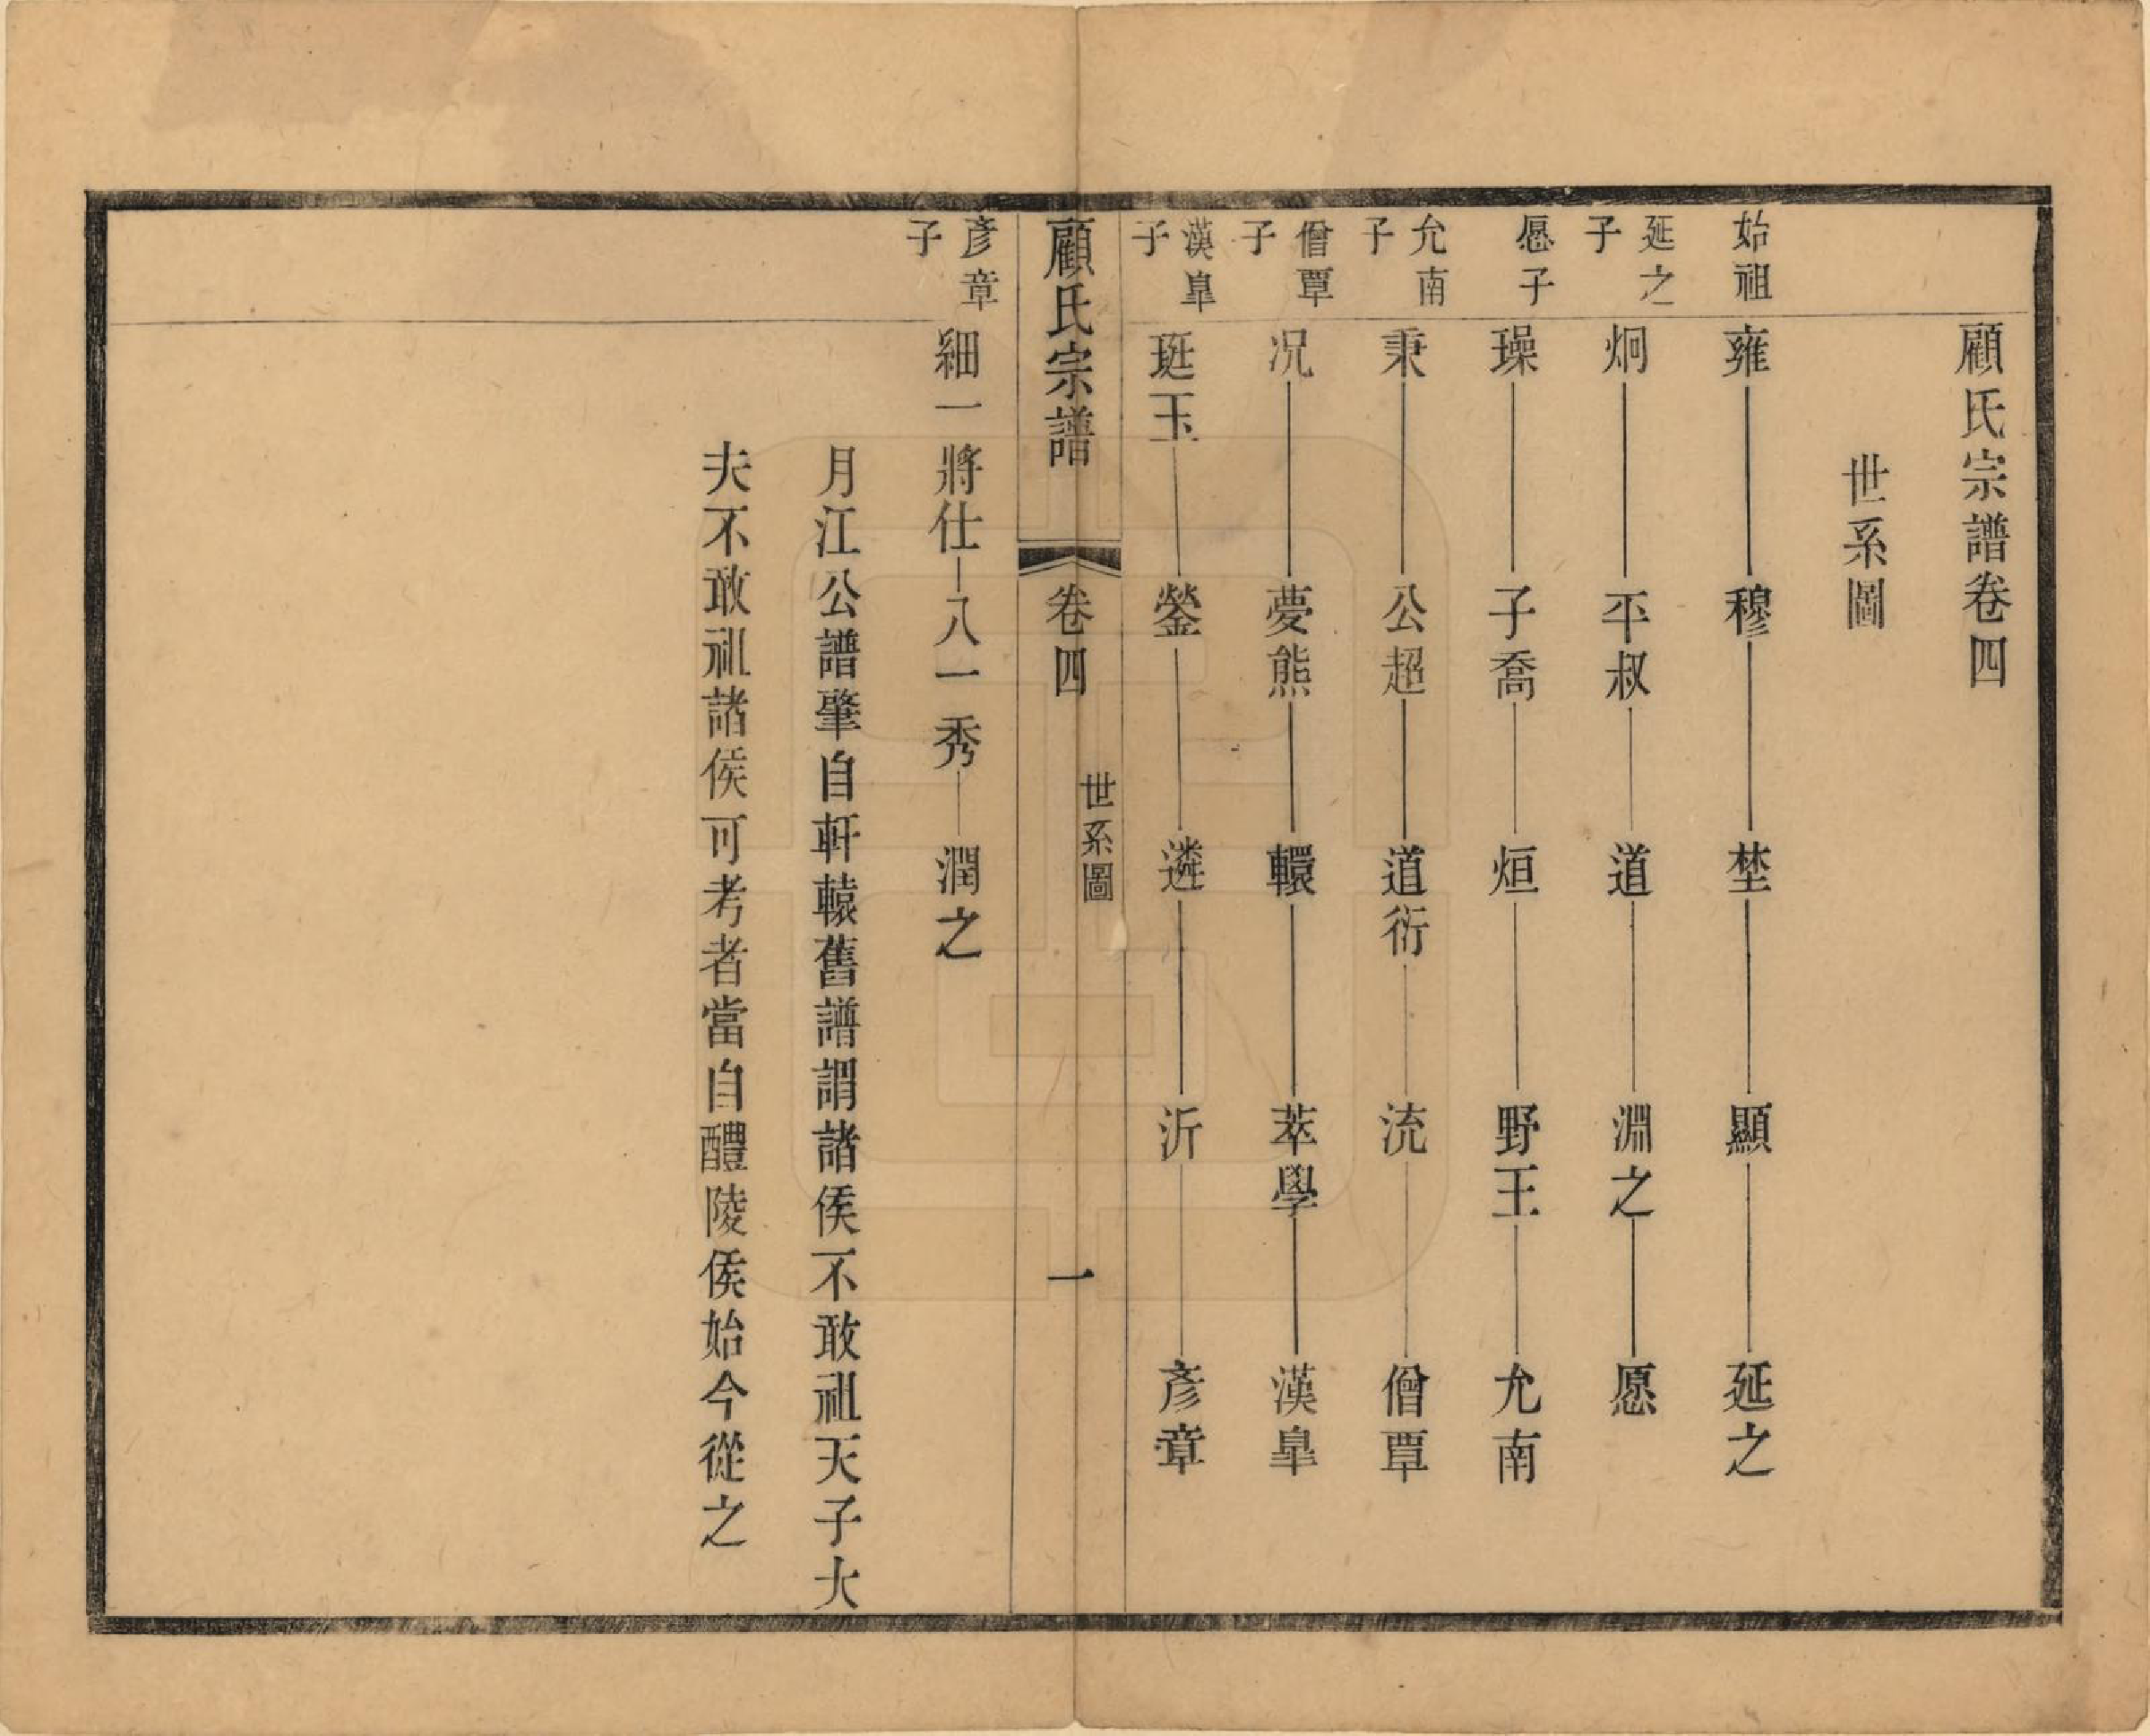 顧氏宗譜卷四
世系圖
始祖
雍 穆 埜 顯 延之
延之子
炯 平叔 道 淵之 愿
愿子
璪 子喬 烜 野王 允南
允南子
秉 公超 道衍 流 僧覃
僧覃子
況 夢熊 轘 萃學 漢臯
漢臯子
珽玉 鎣 遴 沂 彥章
顧氏宗譜 卷四 世系圖 一
彥章子
細一 將仕 八一秀 潤之
月江公譜肇自軒轅舊譜謂諸侯不敢祖天子大
夫不敢祖諸侯可考者當自醴陵侯始今從之